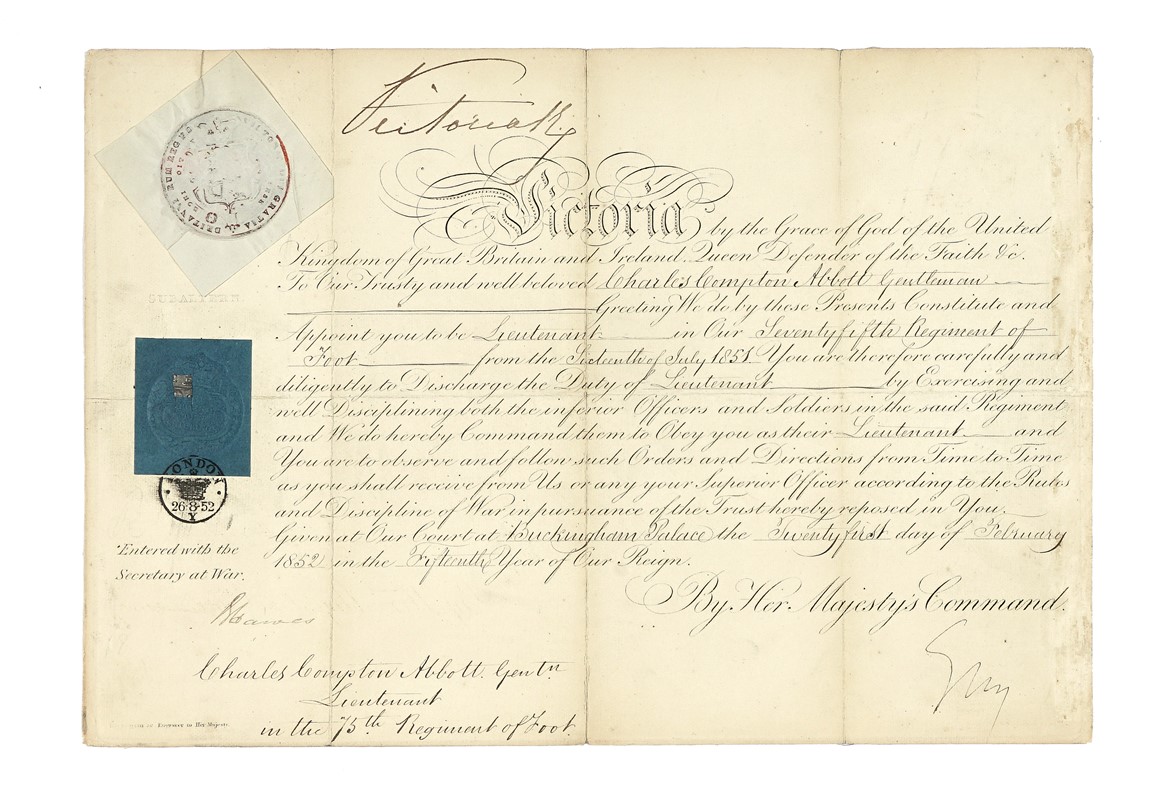 Victoria R
Victoria by the Grace of God of the United
Kingdom of Great Britain and Ireland, Queen Defender of the Faith &c.
To Our Trusty and well beloved Charles Compton Abbott Gentleman
Greeting We do by these Presents Constitute and
Appoint you to be Lieutenant in Our Seventyfifth Regiment of
Foot from the Sixteenth of July 1851 You are therefore carefully and
diligently to Discharge the Duty of Lieutenant by Exercising and
well Disciplining both the inferior Officers and Soldiers in the said Regiment
and We do hereby Command them to Obey you as their Lieutenant and
You are to observe and follow such Orders and Directions from Time to Time
as you shall receive from Us or any your Superior Officer according to the Rules
and Discipline of War in pursuance of the Trust hereby reposed in You.
Given at Our Court at Buckingham Palace the Twenty first day of February
1852 in the Fifteenth Year of Our Reign.
By Her Majesty's Command.
GRATIA
SUBALTERN
LONDON
26·8·52
Y
Entered with the
Secretary at War.
BHawes
Charles Compton Abbott Gentn
Lieutenant
in the 75th Regiment of Foot
Engraver to Her Majesty